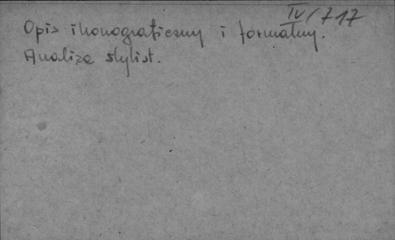 IV/717
Opis ikonograficzny i formalny.
Analiza stylist.